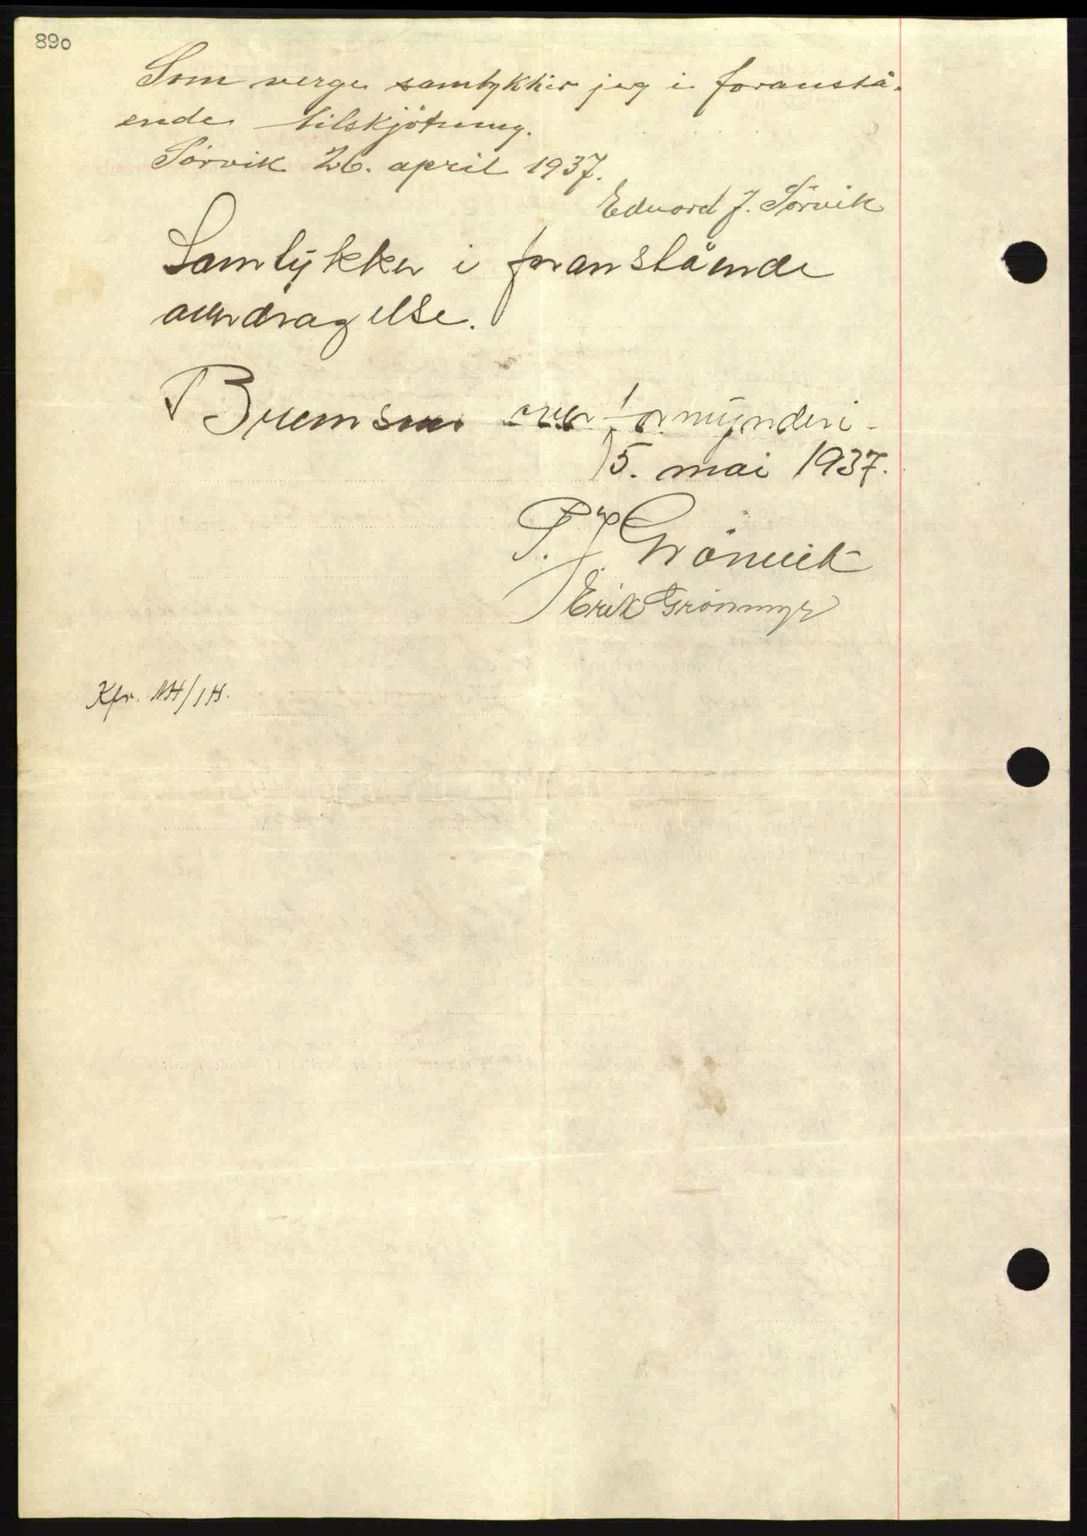 890
Som verge samtykker jeg i foranstå-
ende tilskjötning.
Sörvik 26. april 1937.
Edvard J. Sörvik
Samtykker i foranstående
averdragelse.
Bremsnes overformynderi
15. mai 1937.
P. J. Grönvik
Erik Grönmyr
Kfr. NH/IH.